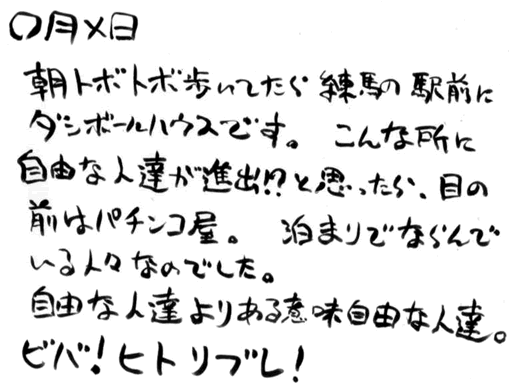 〇月×日
朝トボトボ歩いてたら練馬の駅前に
ダンボールハウスです。 こんな所に
自由な人達が進出!?と思ったら、目の
前はパチンコ屋。 泊まりでならんで
いる人々なのでした。
自由な人達よりある意味自由な人達。
ビバ!ヒトリブレ!